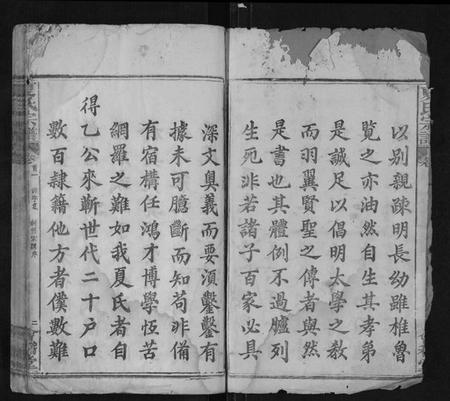 以別親疎明長幼雖椎魯
覽之亦油然自生其孝弟
是誠足以倡明大學之教
而羽翼賢聖之傳者與然
是書也其體例不過臚列
生死非若諸子百家必具
深文奧義而要須鑿鑿有
據未可臆斷而知苟非備
有宿構任鴻才博學恆苦
網羅之難如我夏氏者自
得乙公來蘄世代二十戶口
數百隸籍他方者僕數難
夏氏宗譜